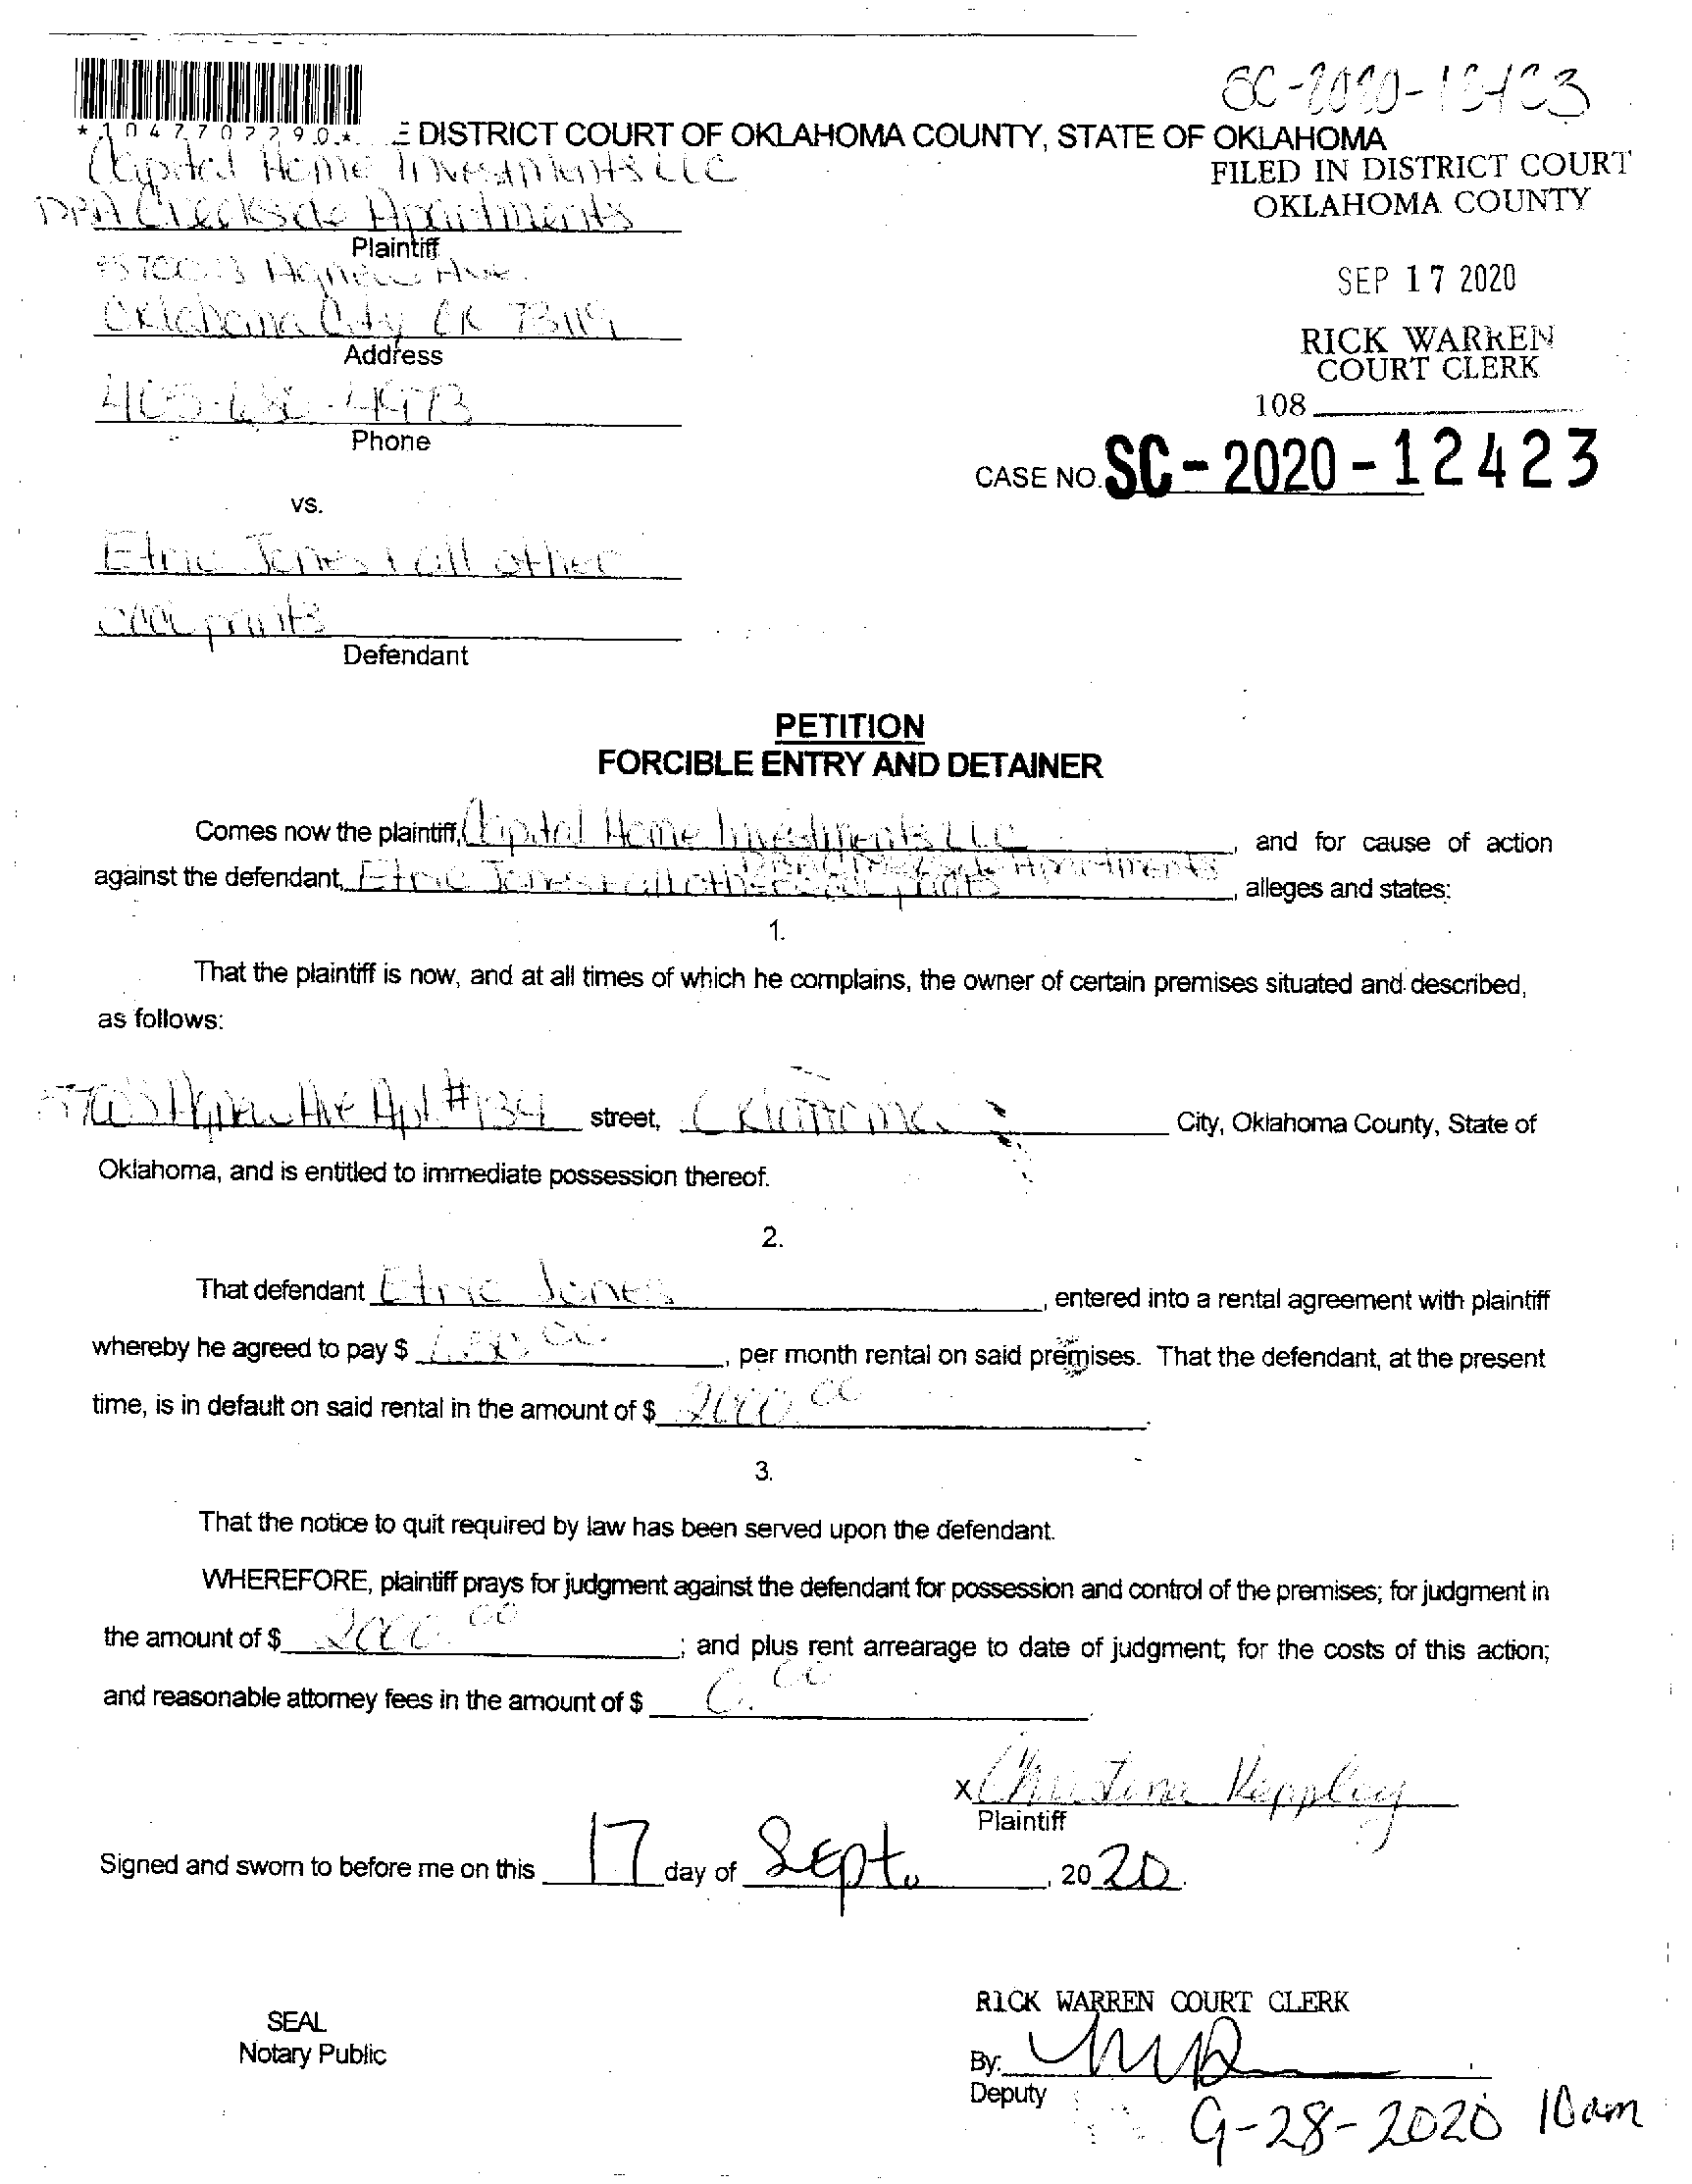 SC-2020-12423
*1047707290*
E DISTRICT COURT OF OKLAHOMA COUNTY, STATE OF OKLAHOMA
Capital Home Investments LLC
FILED IN DISTRICT COURT
OKLAHOMA COUNTY
DBA Creekside Apartments
Plaintiff
SEP 17 2020
5700 S Agnew Ave.
Oklahoma City OK 73119
Address
RICK WARREN
COURT CLERK
405-680-4973
Phone
108
CASE NO. SC-2020-12423
vs.
Etric Jones & all other
occupants
Defendant
PETITION
FORCIBLE ENTRY AND DETAINER
Comes now the plaintiff, Capital Home Investments LLC, and for cause of action
DBA Creekside Apartments
against the defendant, Etric Jones & all other occupants, alleges and states:
1.
That the plaintiff is now, and at all times of which he complains, the owner of certain premises situated and described,
as follows:
5700 S Agnew Ave Apt #134 street, Oklahoma City, Oklahoma County, State of
Oklahoma, and is entitled to immediate possession thereof.
2.
That defendant Etric Jones, entered into a rental agreement with plaintiff
whereby he agreed to pay $, per month rental on said premises. That the defendant, at the present
time, is in default on said rental in the amount of $ 2000.00.
3.
That the notice to quit required by law has been served upon the defendant.
WHEREFORE, plaintiff prays for judgment against the defendant for possession and control of the premises; for judgment in
the amount of $ 2000.00; and plus rent arrearage to date of judgment; for the costs of this action;
and reasonable attorney fees in the amount of $ 0.00.
x Christina Keppley
Plaintiff
Signed and sworn to before me on this 17 day of Sept., 2020.
RICK WARREN COURT CLERK
SEAL
Notary Public
By:
Deputy
9-28-2020 10am